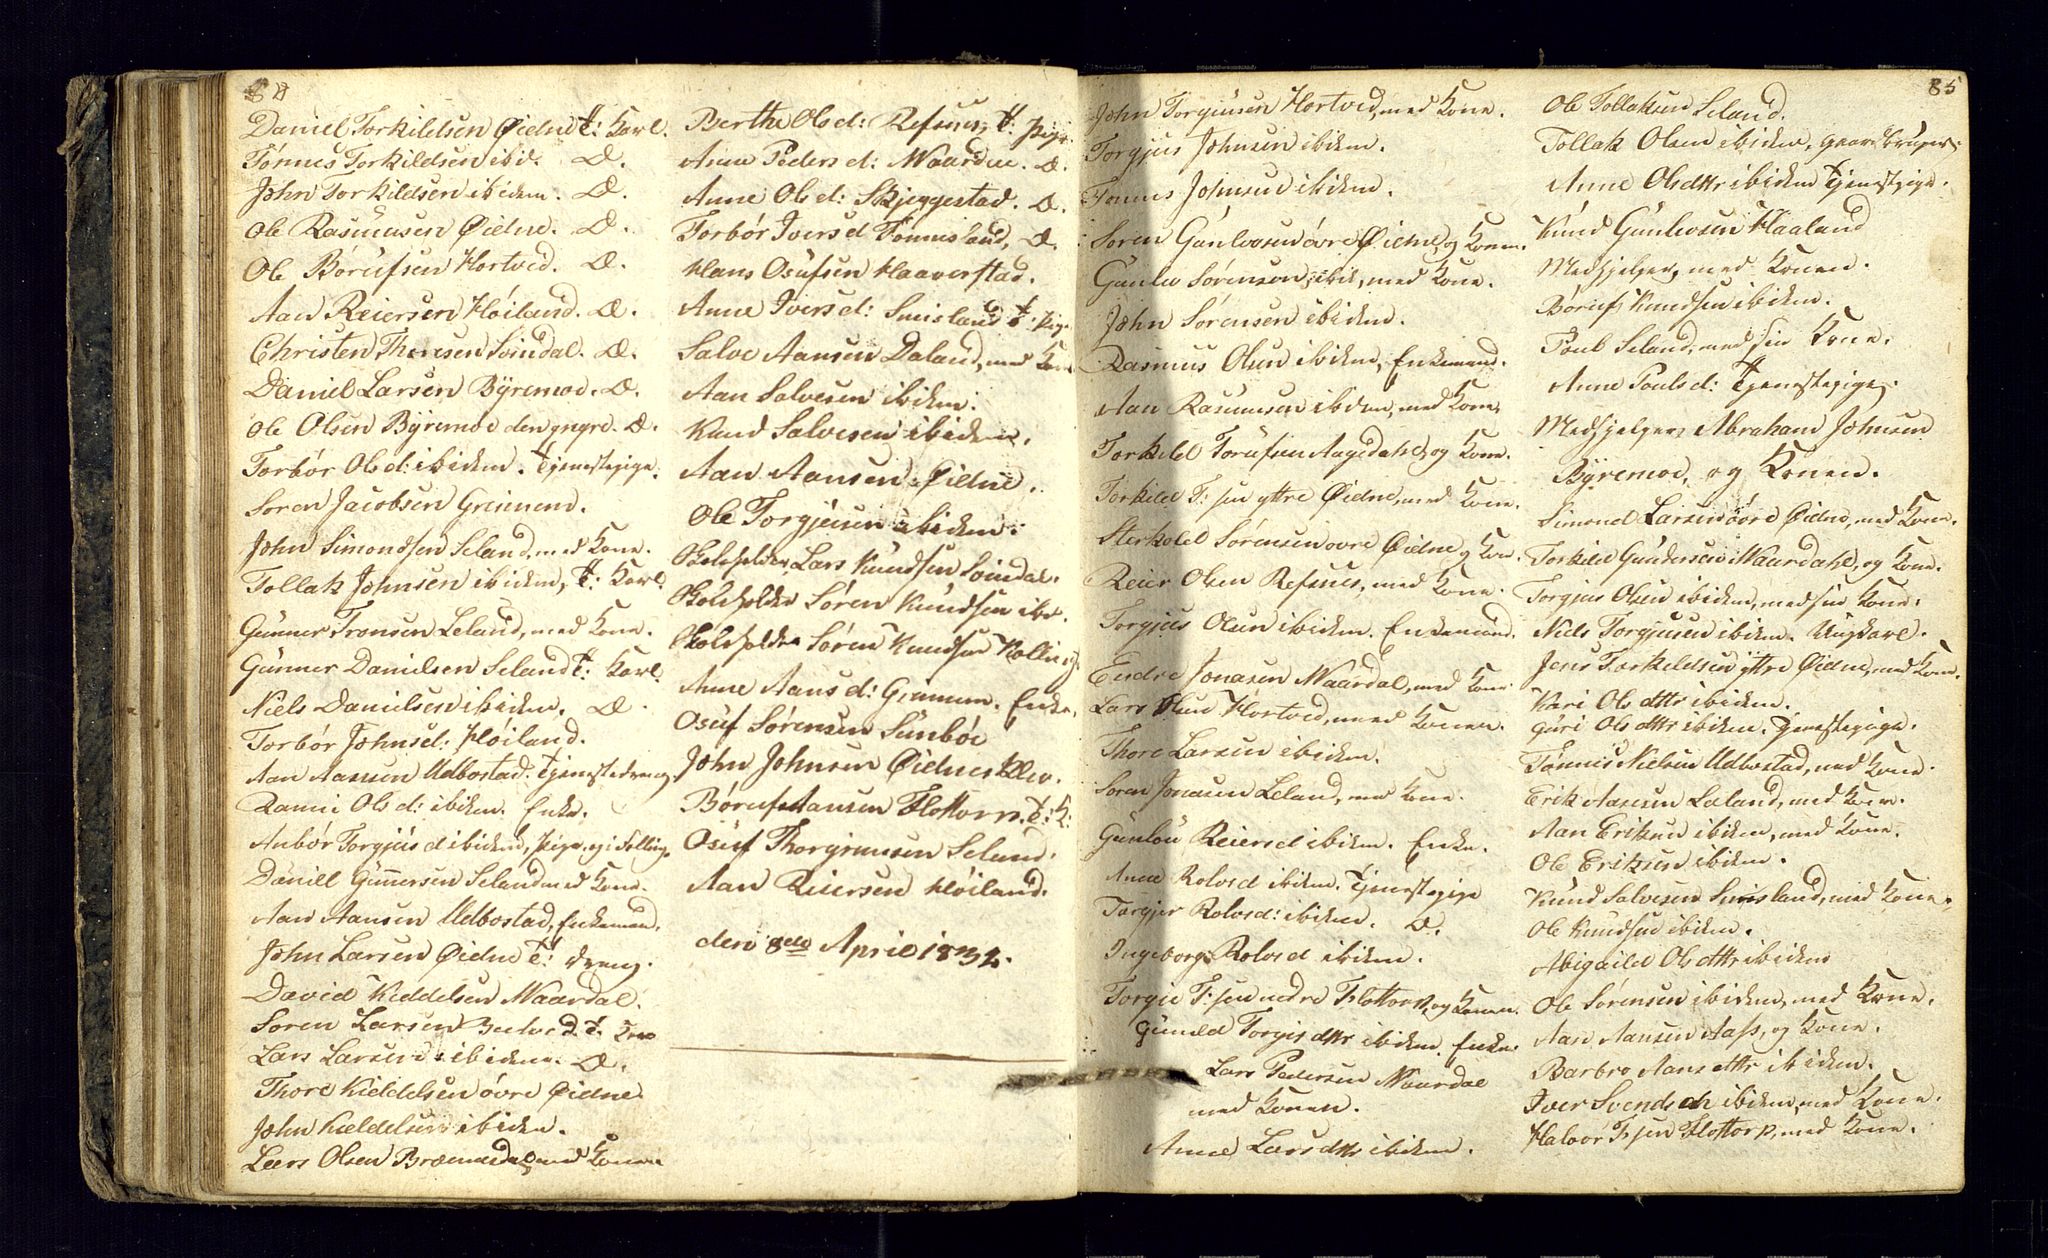 Daniel Torkildsen Øidne T: Karl.
Tønnes Torkildsen ibid. D.
John Torkildsen ibidem. D.
Ole Rasmusen Øidne. D.
Ole Børufsen Hortved. D.
Aan Reiersen Høiland. D.
Christen Thoresen Svindal. D.
Daniel Larsen Byremoe. D.
Ole Olsen Byremoe den yngre. D.
Torbør Olsd: ibidem. Tjenestepige.
Søren Jacobsen Grimmem.
John Simondsen Seland, med Kone.
Tollak Johnsen ibidem, T: Karl.
Gunner Tronsen Leland, med Kone.
Gunner Danielsen Seland T: Karl.
Niels Danielsen ibidem. D.
Torbør Johnsd: Høiland.
Aan Aansen Udbostad. Tjenestedreng
Olsd: ibidem. Enke.
Anbør Torgjusd ibidem, Pige,
Daniell Gunnersen Seland med Kone.
Aan Aansen Udbostad, Enkemand.
John Larsen Øidne T: dreng.
David Keddelsen Waardal.
Søren Larsen T.
Lars Larsen ibidem. D.
Thore Kieddelsen øvre Øidne
John Kieldelsen ibidem.
Lars Olsen med Konen
Berthe Olsd: Refsnes, T: Pige
Anne Pedersd: Waardal. D.
Anne Olsd: Skjeggestad. D.
Torbør Iversd Tønnesland, D.
Hans Osufsen Haaverstad.
Anne Iversd: Smisland T: Pige
Salve Aansen Daland, med Kone
Aan Salvesen ibidem.
Knud Salvesen ibidem.
Aan Aansen Øidne.
Ole Torgjusen ibidem.
Skoleholder Lars Knudsen Svindal.
Skoleholder Søren Knudsen ibd.
Skoleholder Søren Knudsen
Anne Aansd: Grimmem. Enke.
Osuf Sørensen Sunbøe
John Johnsen Øidnes
Børuf Aansen Flottorp. T: K:
Osuf Thorgrimsen Seland.
Aan Reiersen Høiland.
den 8de April 1832.
85
John Torgiusen Hortved, med Kone.
Torgjus Johnsen ibidem.
Tønnes Johnsen ibidem.
Søren Gunlevsen øvre Øidne, og Konen.
Gunlev Sørensen, ibid, med Kone.
John Sørensen ibidem.
Rasmus Olsen ibidem, Enkemand.
Aan Rasmusen ibidem, med Kone
Torkild Torufsen Aagedahl, og Kone.
Torkild T:sen yttre Øidne, med Kone.
Sterkold Sørensen øvre Øidne og Kone.
Reier Olsen Refsnes, med Kone.
Torgjus Olsen ibidem. Enkemand.
Endre Jonasen Waardal, med Kone
Lars Olsen Hortved, med Konen.
Thore Larsen ibidem.
Søren Jonasen Leland, med Kone.
Gunlou Reiersd ibidem. Enke.
Anne Rolvsd ibidem. Tjenestepige
Torgjer Rolvsd: ibidem. D.
Ingeborg Rolvsd ibidem.
Torgie T:sen nedre Flottorp, og Konen.
Gunild Torgisdttr ibidem. Enke.
Lars Pedersen Waardal
med Konen.
Anne Larsdttr ibidem.
Ole Tollaksen Seland.
Tollak Olsen ibidem, Gaardbruger.
Anne Olsdttr ibidem Tjenestpige.
Knud Gunlevsen Haaland
Medhjelper, med Konen.
Børuf Knudsen ibidem.
Poul Seland, med sin Kone.
Anne Poulsd: Tjenestepige.
Medhjelper Abraham Johnsen
Byremoe, og Konen.
Simond Larsen øvre Øidne, med Kone.
Torkild Gundersen Waardahl, og Kone.
Torgjus Olsen ibidem, med sin Kone.
Niels Torgjusen ibidem. Ungkarl.
Jens Torkeldsen yttre Øidne, med Kone.
Kari Olsdttr ibidem.
Guri Olsdttr ibidem. Tjenestepige.
Tønnes Nielsen Udbostad, med Kone.
Erik Aasesen Leland, med Kone.
Aan Eriksen ibidem, med Kone.
Ole Eriksen ibidem.
Knud Salvesen Smisland, med Kone.
Ole Knudsen ibidem.
Abigaild Olsdttr ibidem
Ole Sørensen ibidem, med Kone.
Aan Aansen Aass, og Kone.
Barbro Aansdttr ibidem.
Iver Svendsen ibidem, med Kone.
Halvor T:sen Flottorp, med Kone.